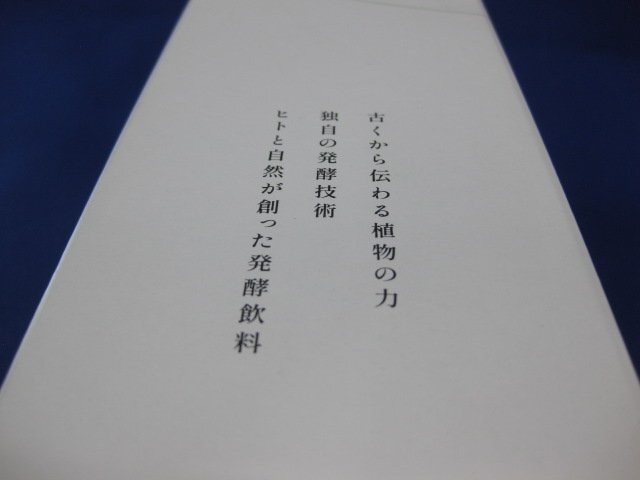 古くから伝わる植物の力
独自の発酵技術
ヒトと自然が創った発酵飲料